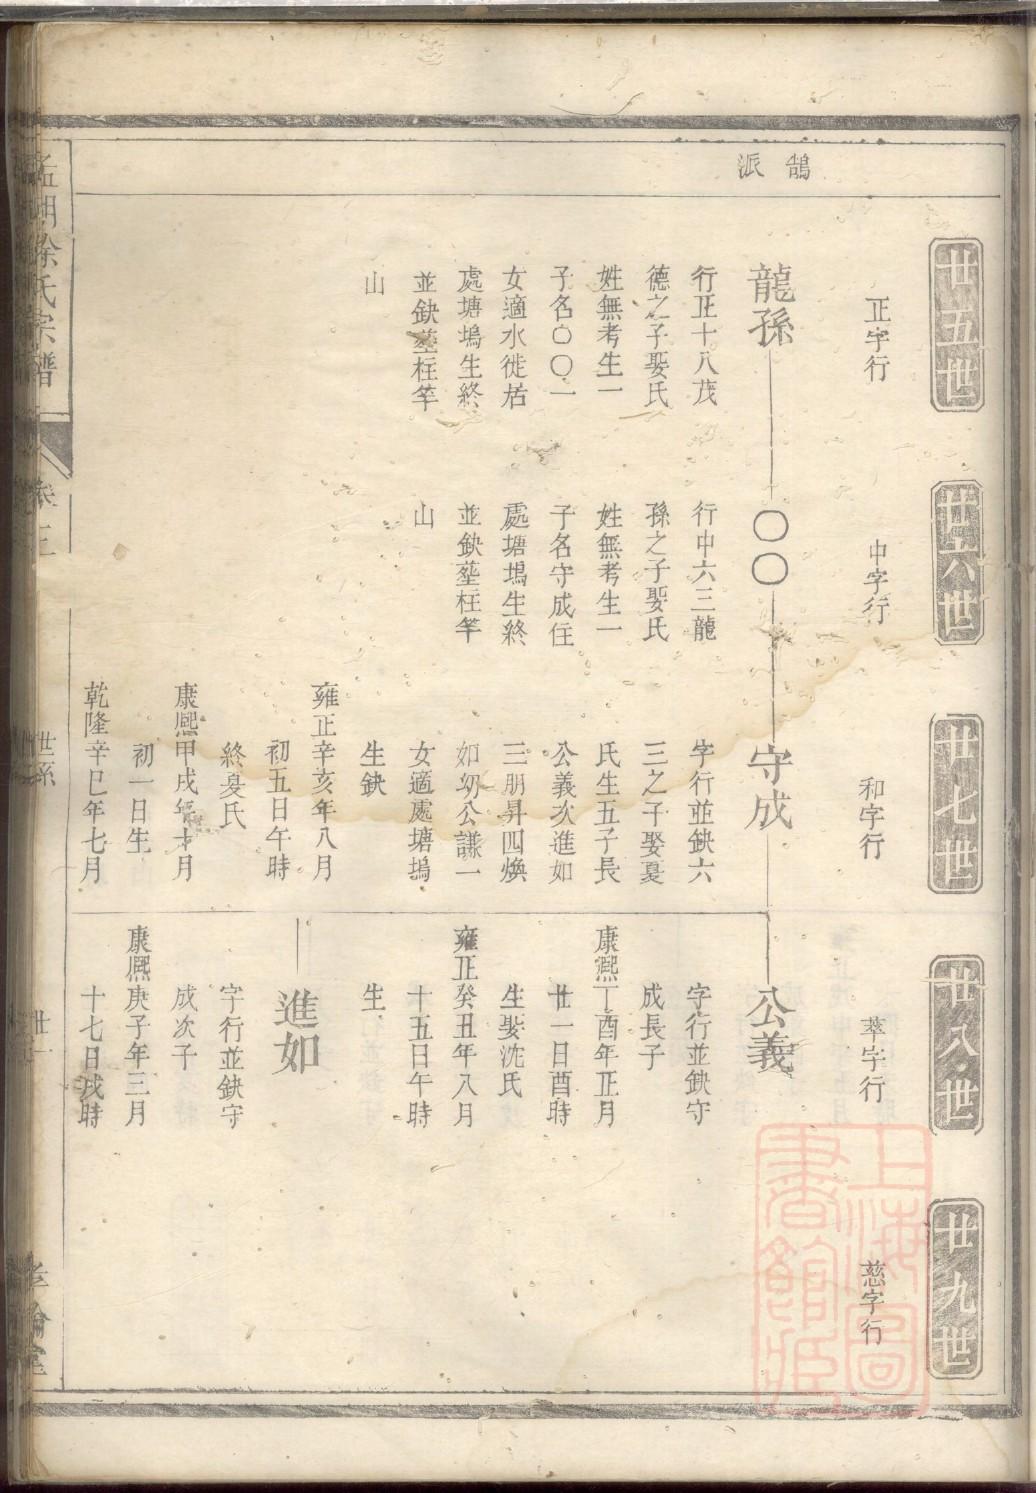 鵠派
廿五世
正字行
廿六世
中字行
廿七世
和字行
廿八世
萃字行
廿九世
慈字行
龍孫
行正十八茂
德之子娶氏
姓無考生一
子名〇〇一
女適水徙居
處塘塢生終
並缺塟枉竿
山
〇〇
行中六三龍
孫之子娶氏
姓無考生一
子名守成住
處塘塢生終
並缺塟枉竿
山
守成
字行並缺六
三之子娶夏
氏生五子長
公義次進如
三朋昇四煥
如幼公謙一
女適處塘塢
生缺
雍正辛亥年八月
初五日午時
終夏氏
康熙甲戌年十月
初一日生
乾隆辛巳年七月
公義
字行並缺守
成長子
康熙丁酉年正月
廿一日酉時
生娶沈氏
雍正癸丑年八月
十五日午時
生
進如
字行並缺守
成次子
康熙庚子年三月
十七日戌時
徐氏宗譜
卷二
世系
廿一
上海圖書館藏